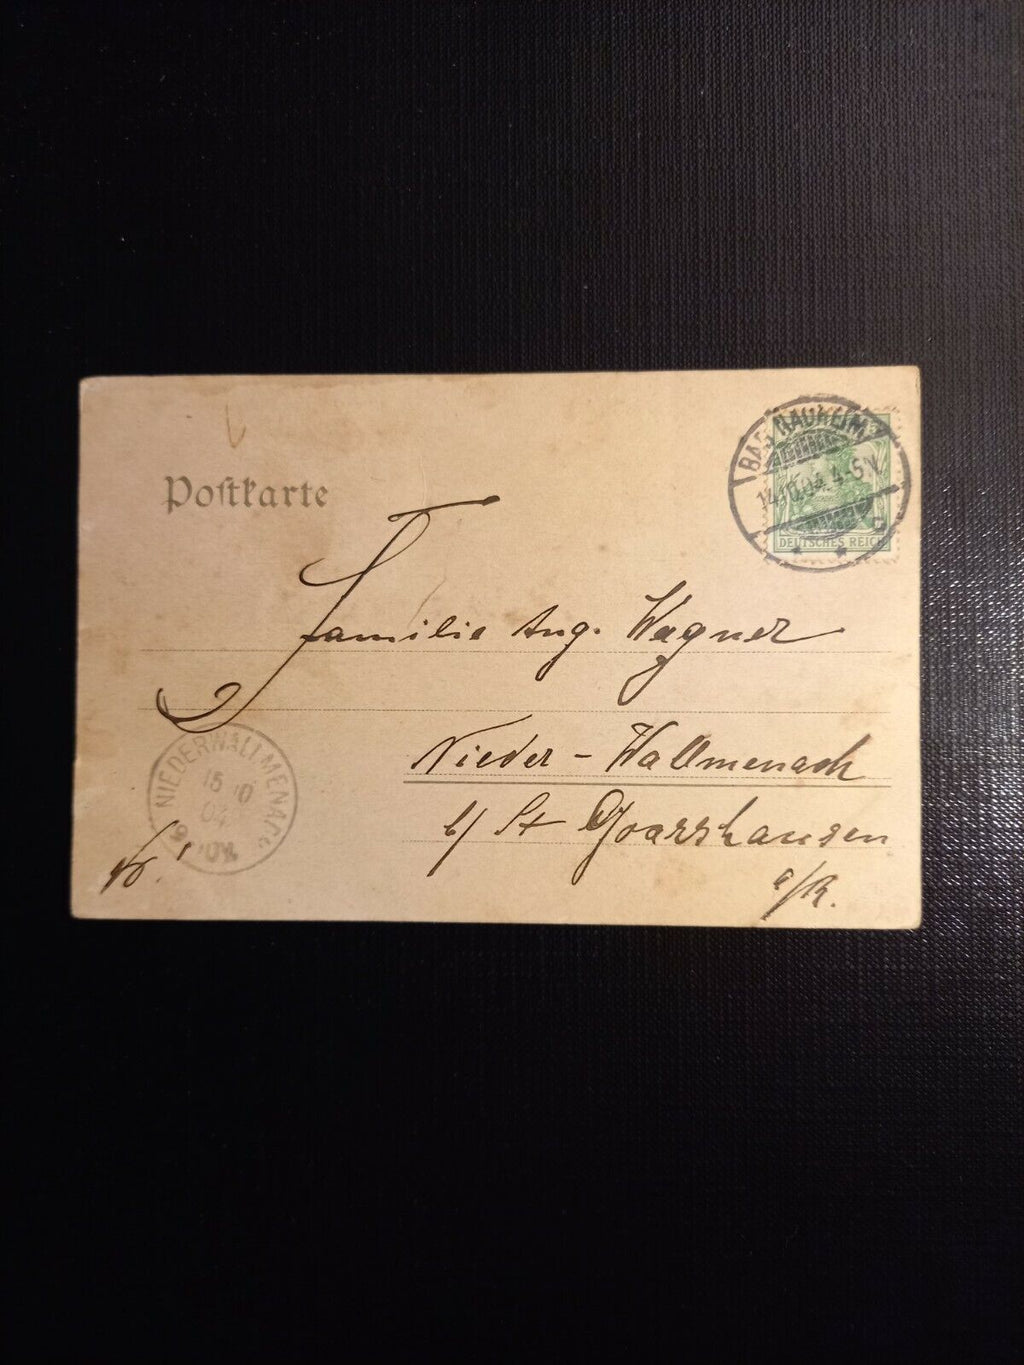 Postkarte
BAD NAUHEIM
14.10.04. 4-5 N.
DEUTSCHES REICH
Familie Aug. Wagner
Nieder-Wallmenach
b/ St Goarshausen
a/R.
NIEDERWALLMENACH
15 10
04